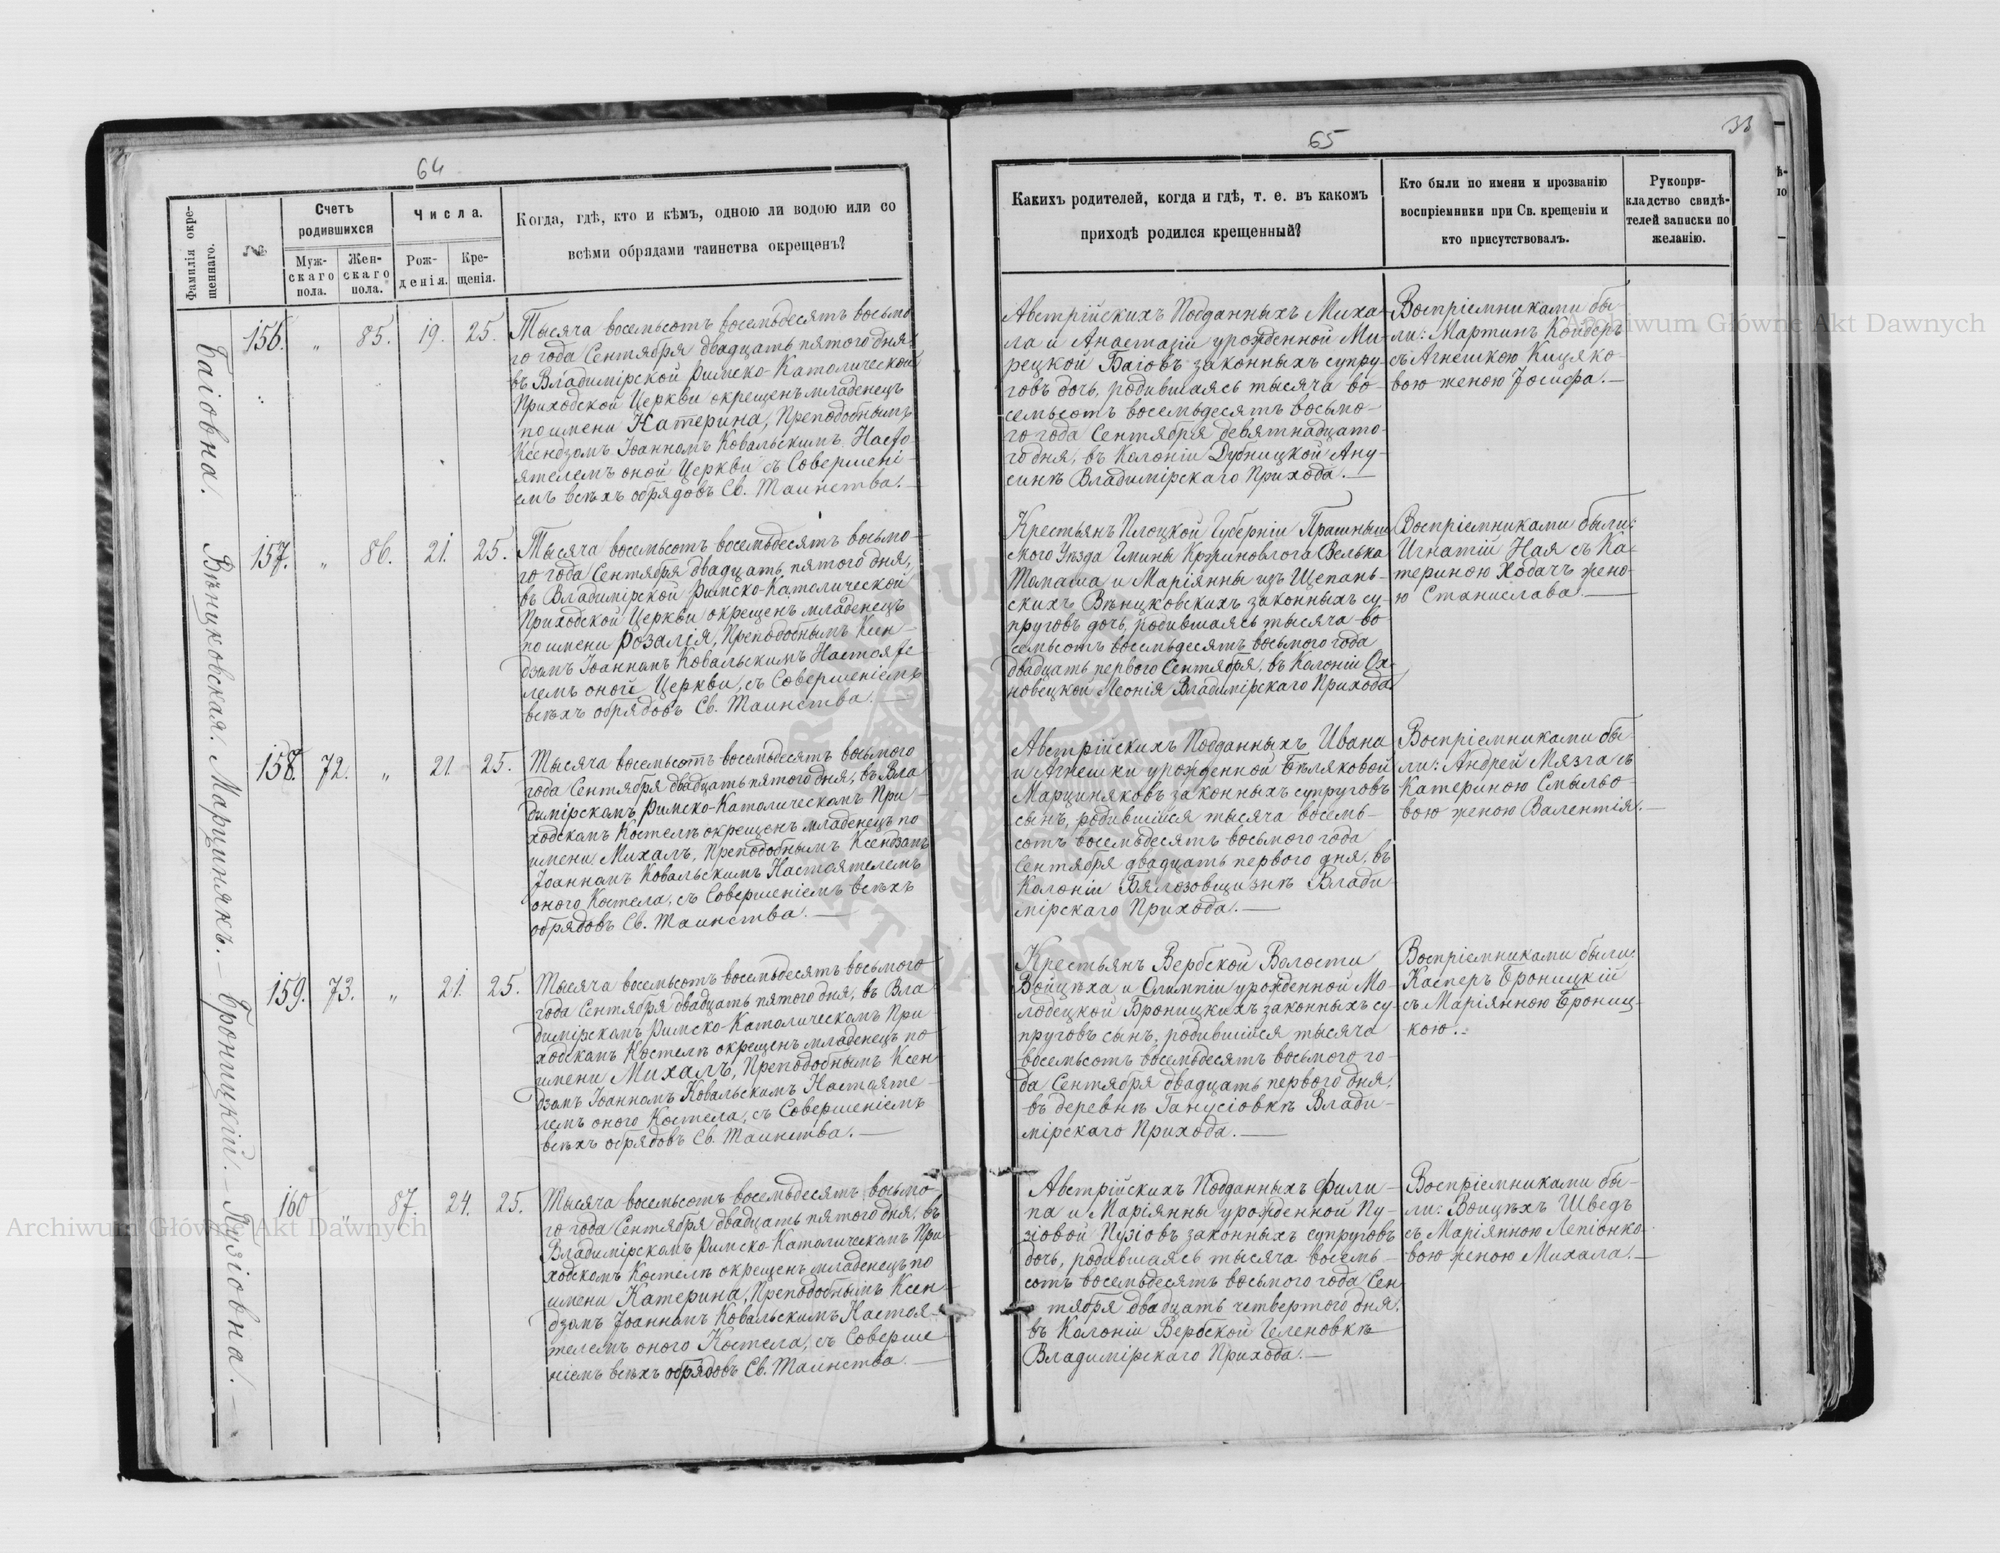 64
Фамилія окре-
щеннаго.
№
Счетъ
родившихся
Муж-
скаго
пола.
Жен-
скаго
пола.
Числа.
Рож-
денія.
Кре-
щенія.
Когда, гдѣ, кто и кѣмъ, одною ли водою или со
всѣми обрядами таинства окрещенъ?
Баіовна. Вѣнцковская. Марцинякъ. – Броницкій. – Пузіовна. –
156. „ 85. 19. 25.
Тысяча восемьсотъ восемьдесятъ восьмо-
го года Сентября двадцать пятого дня,
въ Владимірской Римско-Католической
Приходской Церкви окрещенъ младенецъ
по имени Катерина, Преподобнымъ
Ксендзомъ Іоанномъ Ковальскимъ Насто-
ятелемъ оной Церкви съ Совершені-
емъ всѣхъ обрядовъ Св. Таинства. —
157. „ 86. 21. 25.
Тысяча восемьсотъ восемьдесятъ восьмо-
го года Сентября двадцать пятого дня,
въ Владимірской Римско-Католической
Приходской Церкви окрещенъ младенецъ
по имени Розалія, Преподобнымъ Ксен-
дзомъ Іоанномъ Ковальскимъ Настояте-
лемъ оной Церкви, съ Совершеніемъ
всѣхъ обрядовъ Св. Таинства. —
158. 72. „ 21 25.
Тысяча восемьсотъ восемьдесятъ восьмого
года Сентября двадцать пятого дня, въ Вла-
димірскомъ Римско-Католическомъ При-
ходскомъ Костелѣ окрещенъ младенецъ по
имени Михалъ, Преподобнымъ Ксендзомъ
Іоанномъ Ковальскимъ Настоятелемъ
оного Костела, съ Совершеніемъ всѣхъ
обрядовъ Св. Таинства. —
159. 73. „ 21. 25.
Тысяча восемьсотъ восемьдесятъ восьмого
года Сентября двадцать пятого дня, въ Вла-
димірскомъ Римско-Католическомъ При-
ходскомъ Костелѣ окрещенъ младенецъ по
имени Михалъ, Преподобнымъ Ксен-
дзомъ Іоанномъ Ковальскомъ Настояте-
лемъ оного Костела, съ Совершеніемъ
всѣхъ обрядовъ Св. Таинства. —
160 „ 87. 24. 25.
Тысяча восемьсотъ восемьдесятъ восьмо-
го года Сентября двадцать пятого дня, въ
Владимірскомъ Римско-Католическомъ При-
ходскомъ Костелѣ окрещенъ младенецъ по
имени Катерина, Преподобнымъ Ксен-
дзомъ Іоанномъ Ковальскимъ Настоя-
телемъ оного Костела, съ Соверше-
ніемъ всѣхъ обрядовъ Св. Таинства. —
65
33
Какихъ родителей, когда и гдѣ, т. е. въ какомъ
приходѣ родился крещенный?
Кто были по имени и прозванію
воспріемники при Св. крещеніи и
кто присутствовалъ.
Рукопри-
кладство свидѣ-
телей записки по
желанію.
Австрійскихъ Подданныхъ Миха-
ла и Анастазіи урожденной Ми-
рецкой Баіовъ законныхъ супру-
говъ дочь, родившаясь тысяча во-
семьсотъ восемьдесятъ восьмо-
го года Сентября девятнадцато-
го дня, въ Колоніи Дубницкой Ану-
синѣ Владимірскаго Прихода. —
Воспріемниками бы-
ли: Мартинъ Кондоръ
съ Агнешкою Кицяко-
вою женою Іосифа. —
Крестьянъ Плоцкой Губерніи Прашныш-
ского Уѣзда Гмины Кржиновлога Велька
Томаша и Маріянны изъ Щепань-
скихъ Вѣнцковскихъ законныхъ су-
пруговъ дочь, родившаясь тысяча во-
семьсотъ восемьдесятъ восьмого года
двадцать первого Сентября, въ Колоніи Ох-
новецкой Леонія Владимірскаго Прихода
Воспріемниками были:
Игнатій Ная съ Ка-
териною Ходачъ жено-
ю Станислава. —
Австрійскихъ Подданныхъ Ивана
и Агнешки урожденной Бѣляковой
Марциняковъ законныхъ супруговъ
сынъ, родившийся тысяча восемь-
сотъ восемьдесятъ восьмого года
Сентября двадцать первого дня, въ
Колоніи Бялозовщизнѣ Влади-
мірскаго Прихода. —
Воспріемниками бы-
ли: Андрей Мязга съ
Катериною Смыльо-
вою женою Валентія. —
Крестьянъ Вербской Волости
Войцѣха и Олимпіи урожденной Мо-
лодецкой Броницкихъ законныхъ су-
пруговъ сынъ, родившийся тысяча
восемьсотъ восемьдесятъ восьмого го-
да Сентября двадцать первого дня,
въ деревнѣ Ганусіовкѣ Влади-
мірскаго Прихода. —
Воспріемниками были:
Касперъ Броницкій
съ Маріянною Брониц-
кою.
Австрійскихъ Подданныхъ Фили-
па и Маріянны урожденной Пу-
зіовой Пузіовъ законныхъ супруговъ
дочь, родившаясь тысяча восемь-
сотъ восемьдесятъ восьмого года Сен-
тября двадцать четвертого дня,
въ Колоніи Вербской Геленовкѣ
Владимірскаго Прихода. —
Воспріемниками бы-
ли: Воицѣхъ Шведъ
съ Маріянною Лепіонко-
вою женою Михала. —
Archiwum Główne Akt Dawnych
Archiwum Główne Akt Dawnych